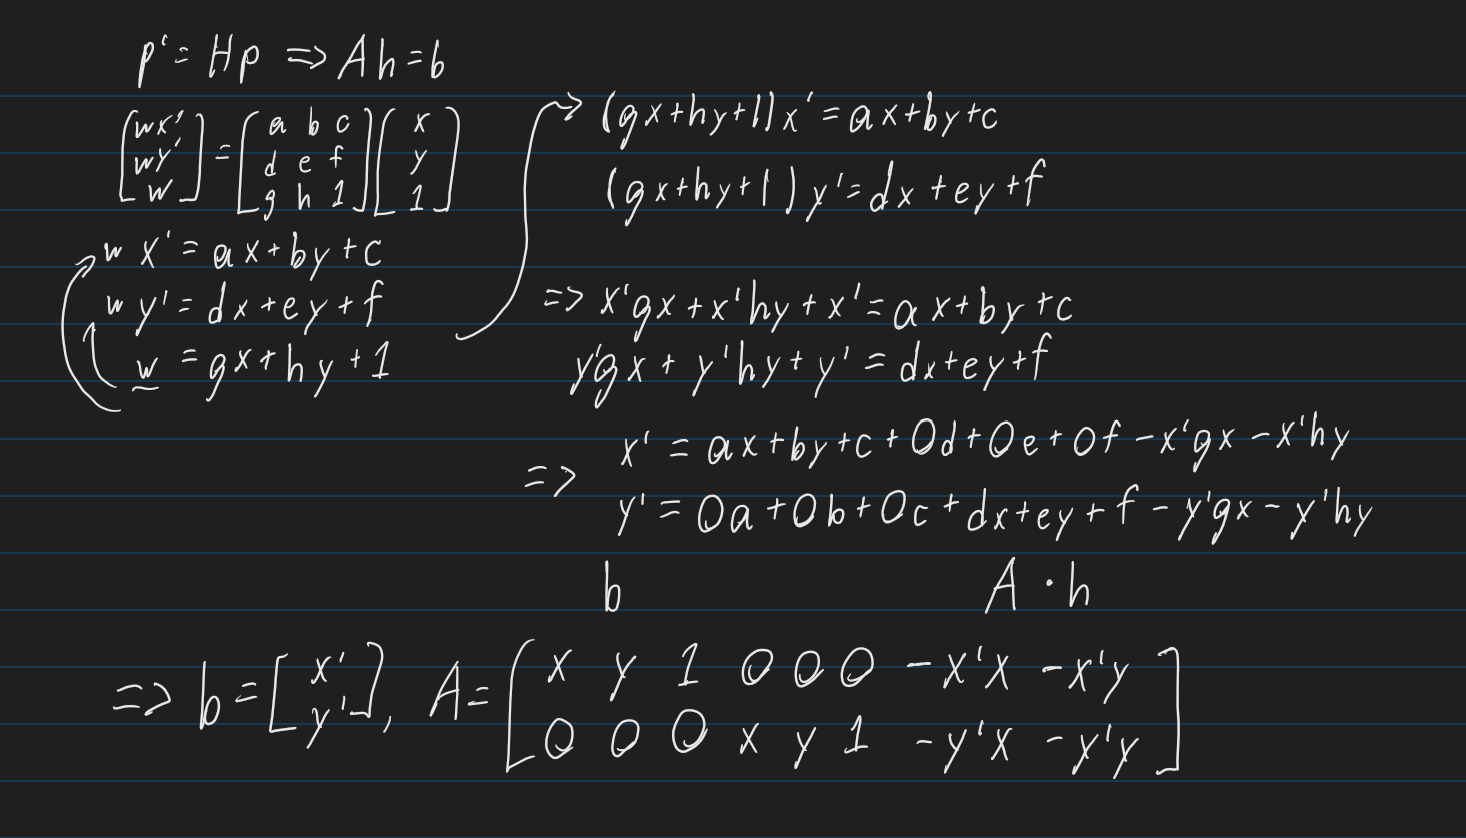 p' = Hp ⇒ Ah = b
[wx'; wy'; w] = [a b c; d e f; g h 1] [x; y; 1]
w x' = ax + by + c
w y' = dx + ey + f
w = gx + hy + 1
(gx+hy+1)x' = ax+by+c
(gx+hy+1)y' = dx+ey+f
⇒ x'gx + x'hy + x' = ax+by+c
y'gx + y'hy + y' = dx+ey+f
⇒ x' = ax+by+c+0d+0e+0f-x'gx-x'hy
y' = 0a+0b+0c+dx+ey+f-y'gx-y'hy
b A · h
⇒ b = [x'; y'], A = [x y 1 0 0 0 -x'x -x'y; 0 0 0 x y 1 -y'x -y'y]